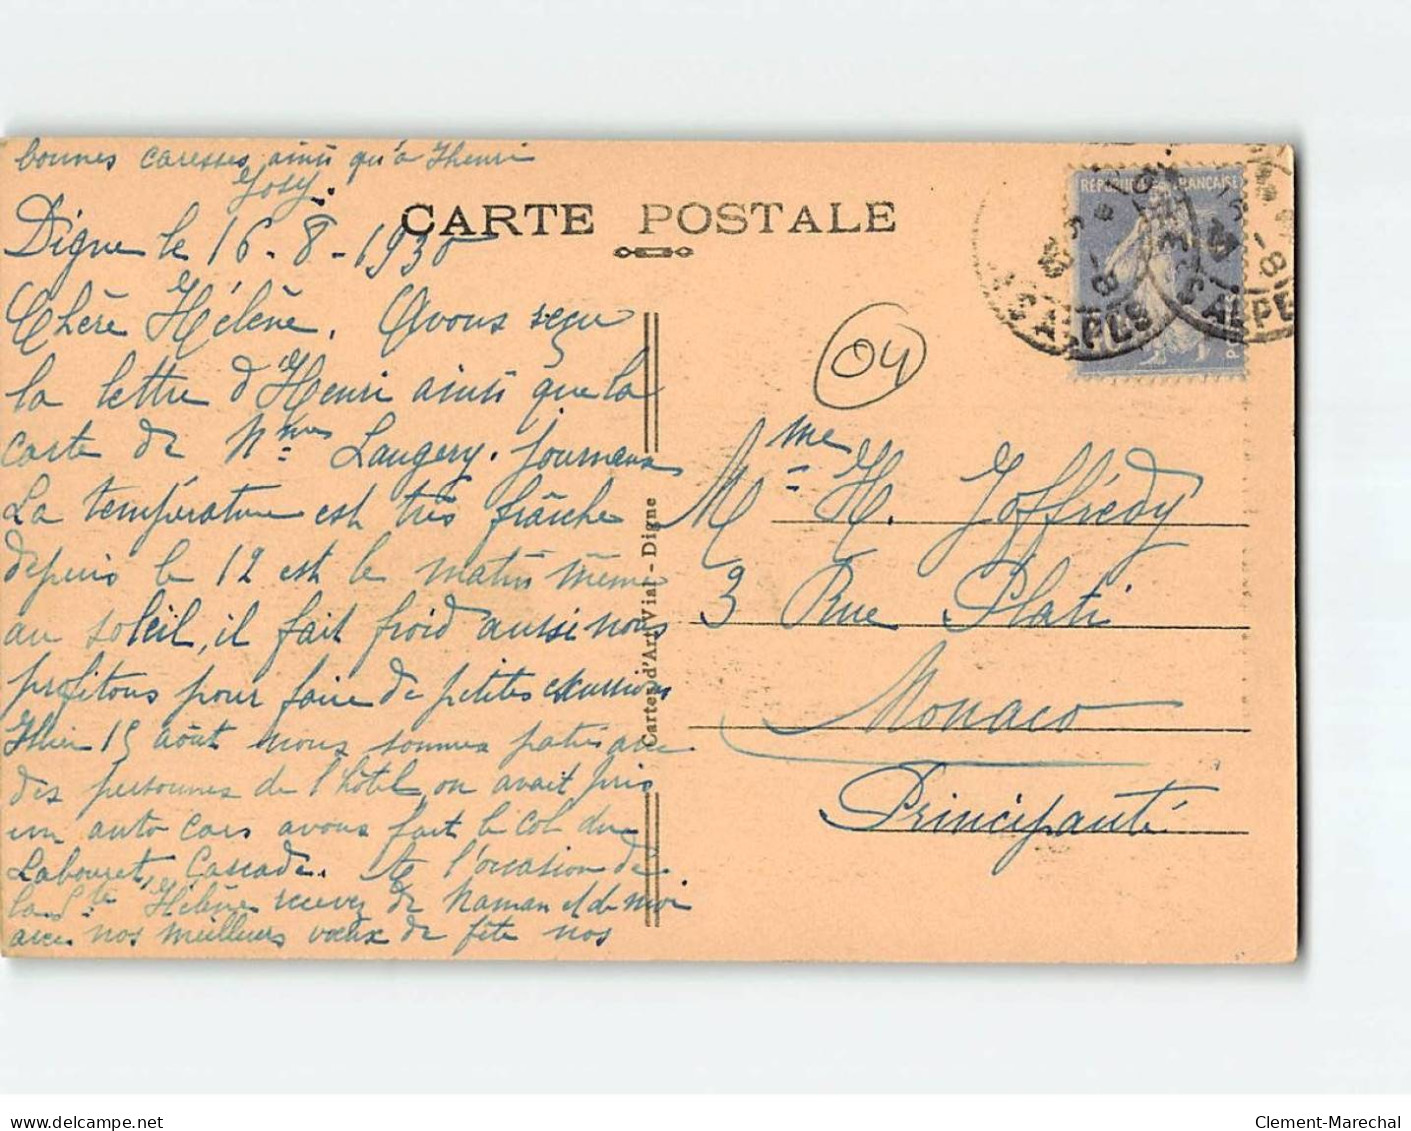 bonnes caresses ainsi qu'à Henri
Josy.
Digne le 16-8-1930
CARTE POSTALE
Chère Hélène. Avons reçu
la lettre d'Henri ainsi que la
carte de Mmes Laugery. Journeaux
La température est très fraîche
depuis le 12 est le matin même
au soleil, il fait froid aussi nous
profitons pour faire de petites excursions
Hier 15 août nous sommes partis avec
des personnes de l'hôtel, on avait pris
un auto cars avons fait le col du
Labouret, Cascade. A l'occasion de
la Ste Hélène recevez de Maman et de moi
avec nos meilleurs vœux de fête nos
Cartes d'Art Vial - Digne
04
RÉPUBLIQUE FRANÇAISE
ALPES
ALPE
Mme H. Joffrédy
3 Rue Plati
Monaco
Principauté
Clement-Marechal